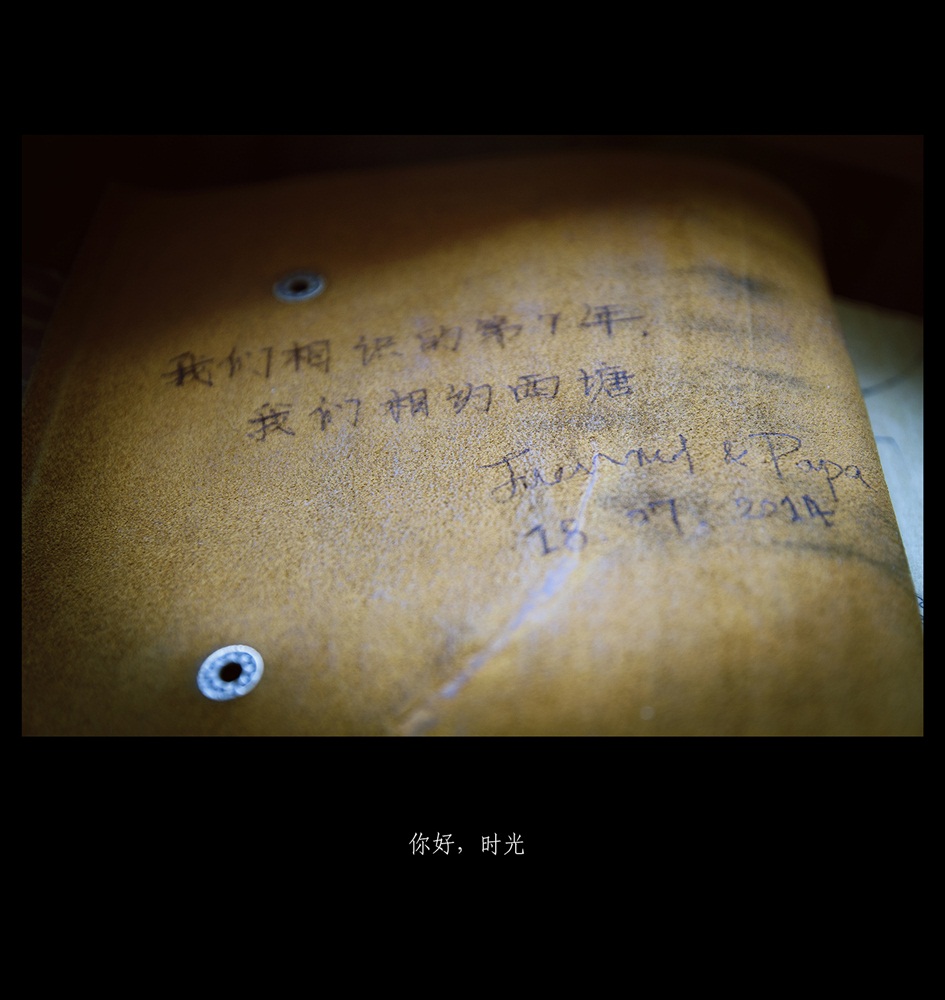 我们相识的第7年.
我们相约西塘
& Papa
18. 07. 2014
你好，时光